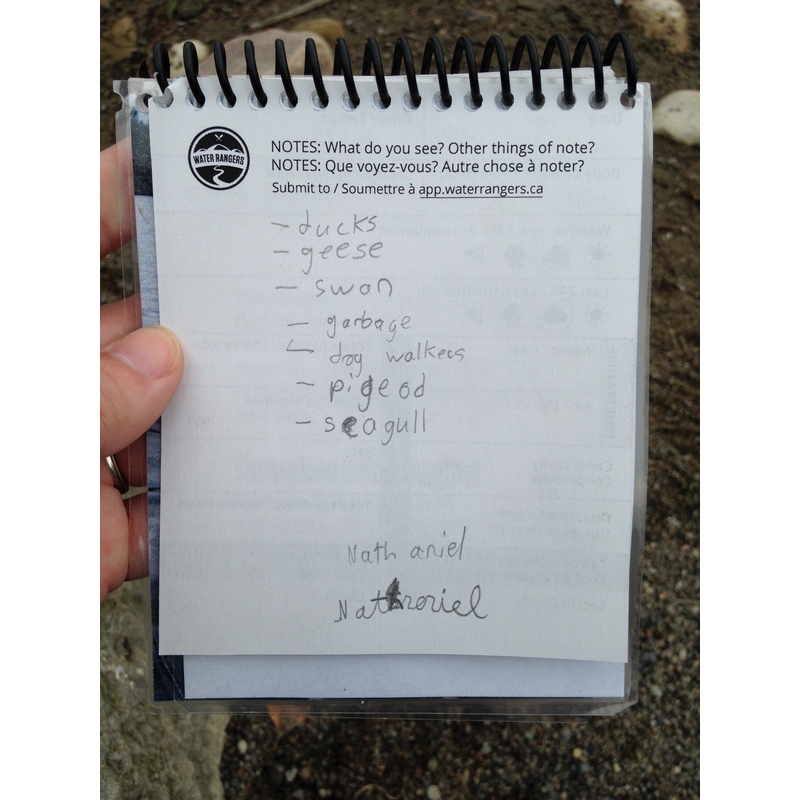 WATER RANGERS
NOTES: What do you see? Other things of note?
NOTES: Que voyez-vous? Autre chose à noter?
Submit to / Soumettre à app.waterrangers.ca
- ducks
- geese
- swan
- garbage
- dog walkers
- pigeod
- seagull
Nathaniel
Nathaniel